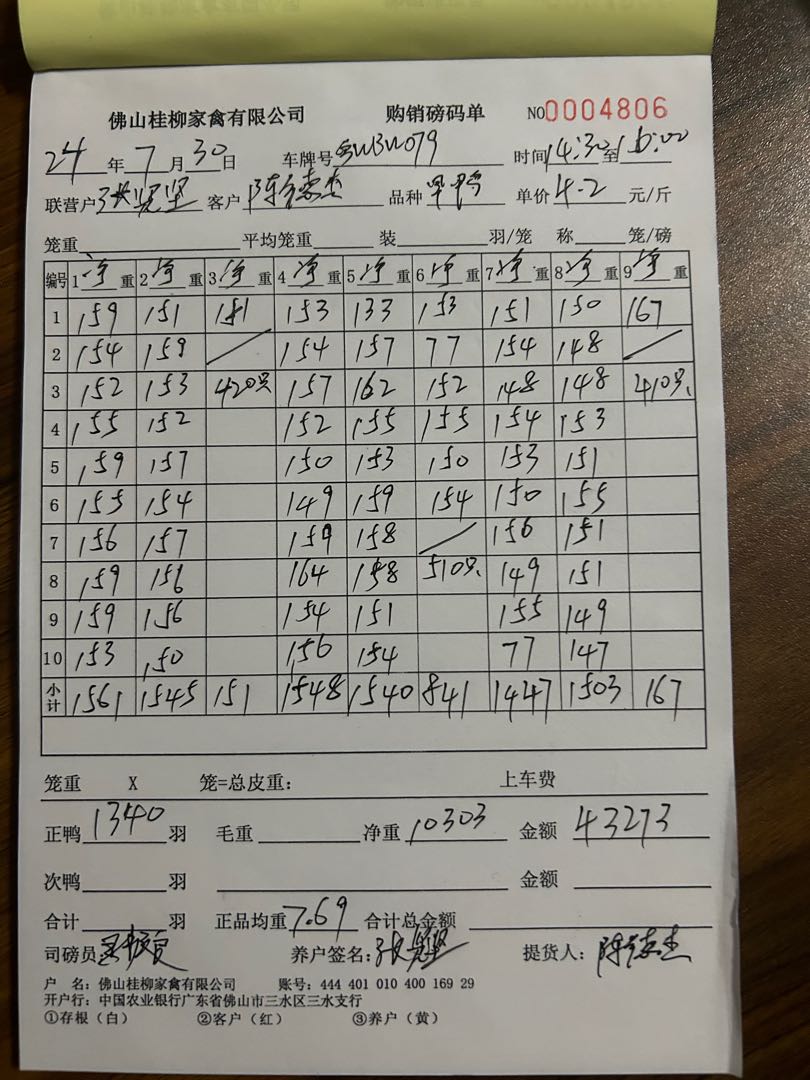 佛山桂柳家禽有限公司 购销磅码单 NO0004806
24年7月30日 车牌号 079 时间14:30至16:00
联营户 张 坚 客户 陈 杰 品种 单价4.2元/斤
笼重 平均笼重 装 羽/笼 称 笼/磅
编号 1净重 2净重 3净重 4净重 5净重 6净重 7净重 8净重 9净重
1 159 151 151 153 133 153 151 150 167
2 154 159 / 154 157 77 154 148 /
3 152 153 420只 157 162 152 148 148 410只
4 155 152 152 155 155 154 153
5 159 157 150 153 150 153 151
6 155 154 149 159 154 150 155
7 156 157 159 158 / 156 151
8 159 156 164 158 510只 149 151
9 159 156 154 151 155 149
10 153 150 156 154 77 147
小计 1561 1545 151 1548 1540 841 1447 1503 167
笼重 X 笼=总皮重: 上车费
正鸭1340羽 毛重 净重10303 金额43273
次鸭 羽 金额
合计 羽 正品均重7.69 合计总金额
司磅员 养户签名:张 坚 提货人:陈 杰
户 名: 佛山桂柳家禽有限公司 账号: 444 401 010 400 169 29
开户行: 中国农业银行广东省佛山市三水区三水支行
①存根(白) ②客户(红) ③养户(黄)